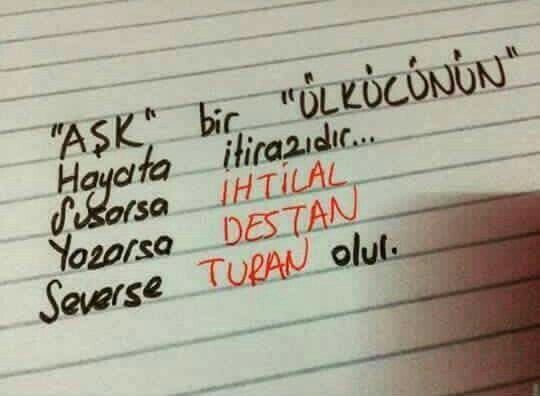 "AŞK" bir "ÜLKÜCÜNÜN"
Hayata itirazıdır...
Susarsa İHTİLAL
Yazarsa DESTAN
Severse TURAN olur.